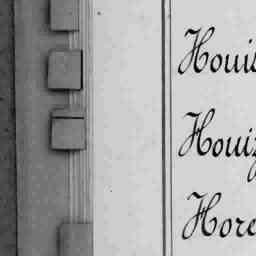 Houis
Houiz
Hore